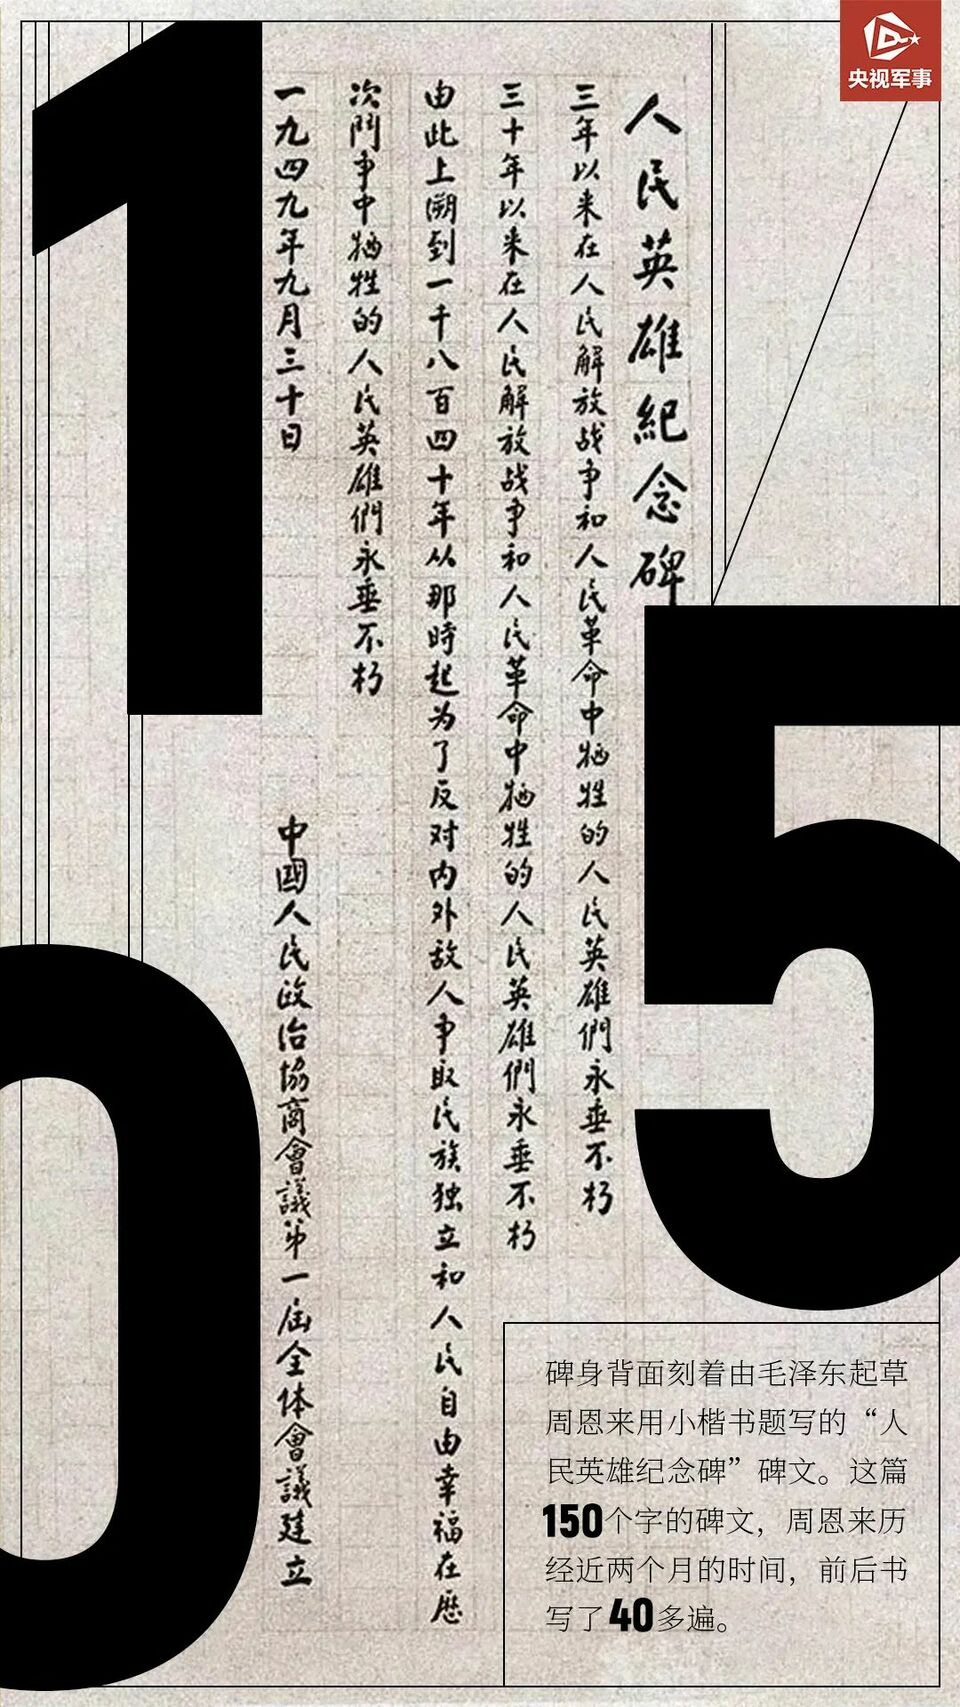 央视军事
150
人民英雄紀念碑
三年以来在人民解放战争和人民革命中牺牲的人民英雄們永垂不朽
三十年以来在人民解放战争和人民革命中牺牲的人民英雄們永垂不朽
由此上溯到一千八百四十年从那時起为了反对内外敌人争取民族独立和人民自由幸福在歷
次鬥争中牺牲的人民英雄們永垂不朽
一九四九年九月三十日
中國人民政治協商會議第一届全体會議建立
碑身背面刻着由毛泽东起草
周恩来用小楷书题写的“人
民英雄纪念碑”碑文。这篇
150个字的碑文，周恩来历
经近两个月的时间，前后书
写了40多遍。